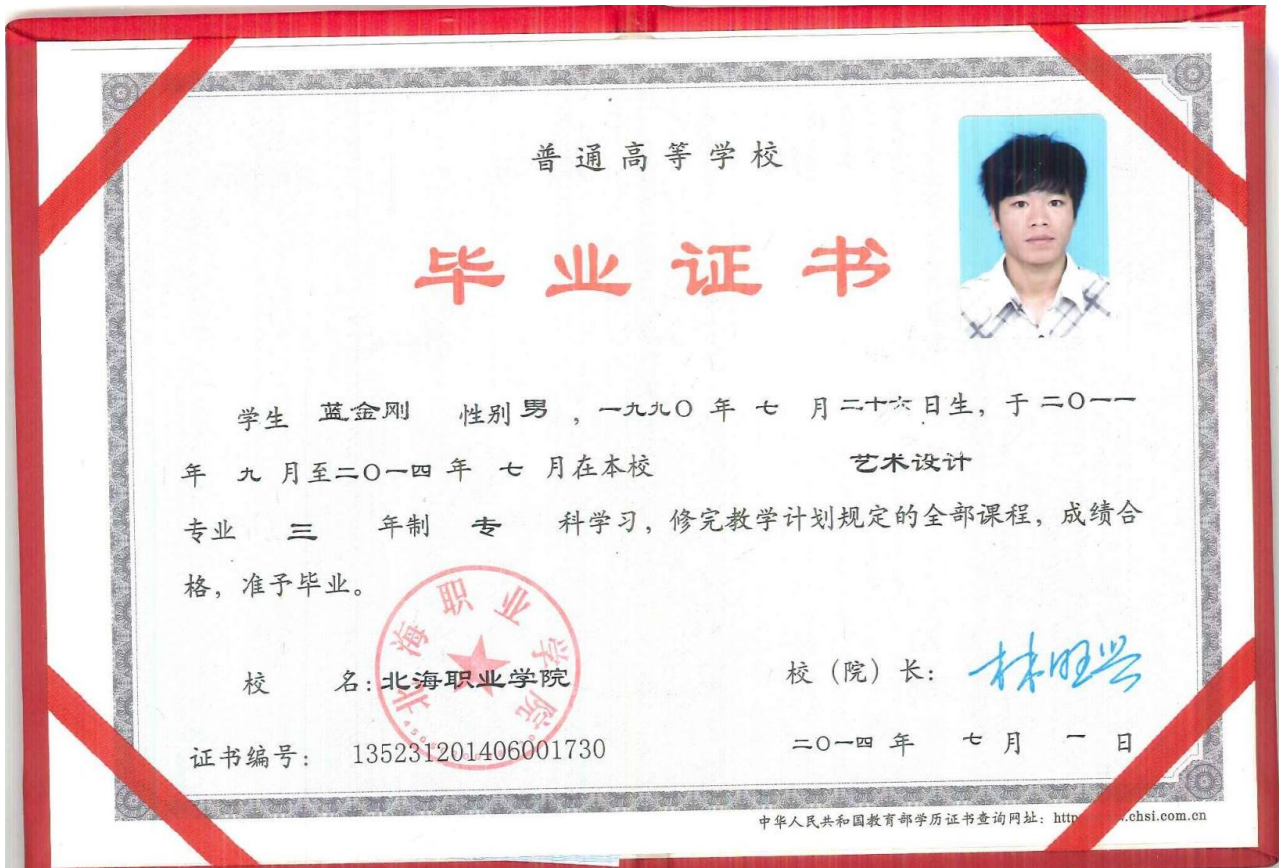 普通高等学校
毕业证书
学生 蓝金刚 性别 男 ，一九九〇 年 七 月二十六日生，于二〇一一
年 九 月至二〇一四 年 七 月在本校 艺术设计
专业 三 年制 专 科学习，修完教学计划规定的全部课程，成绩合
格，准予毕业。
北海职业学院
校 名：北海职业学院
校（院）长：林旺兴
证书编号： 135231201406001730
二〇一四 年 七 月 一 日
中华人民共和国教育部学历证书查询网址：http .chsi.com.cn